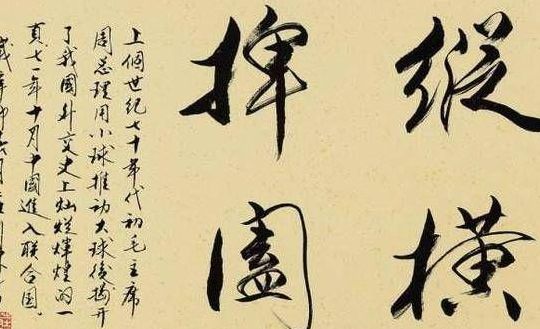 縱横
捭闔
上個世纪七十年代初毛主席
周总理用小球推动大球後揭开
了我國外交史上灿烂煇煌的一
頁七一年十月中國進入联合国。